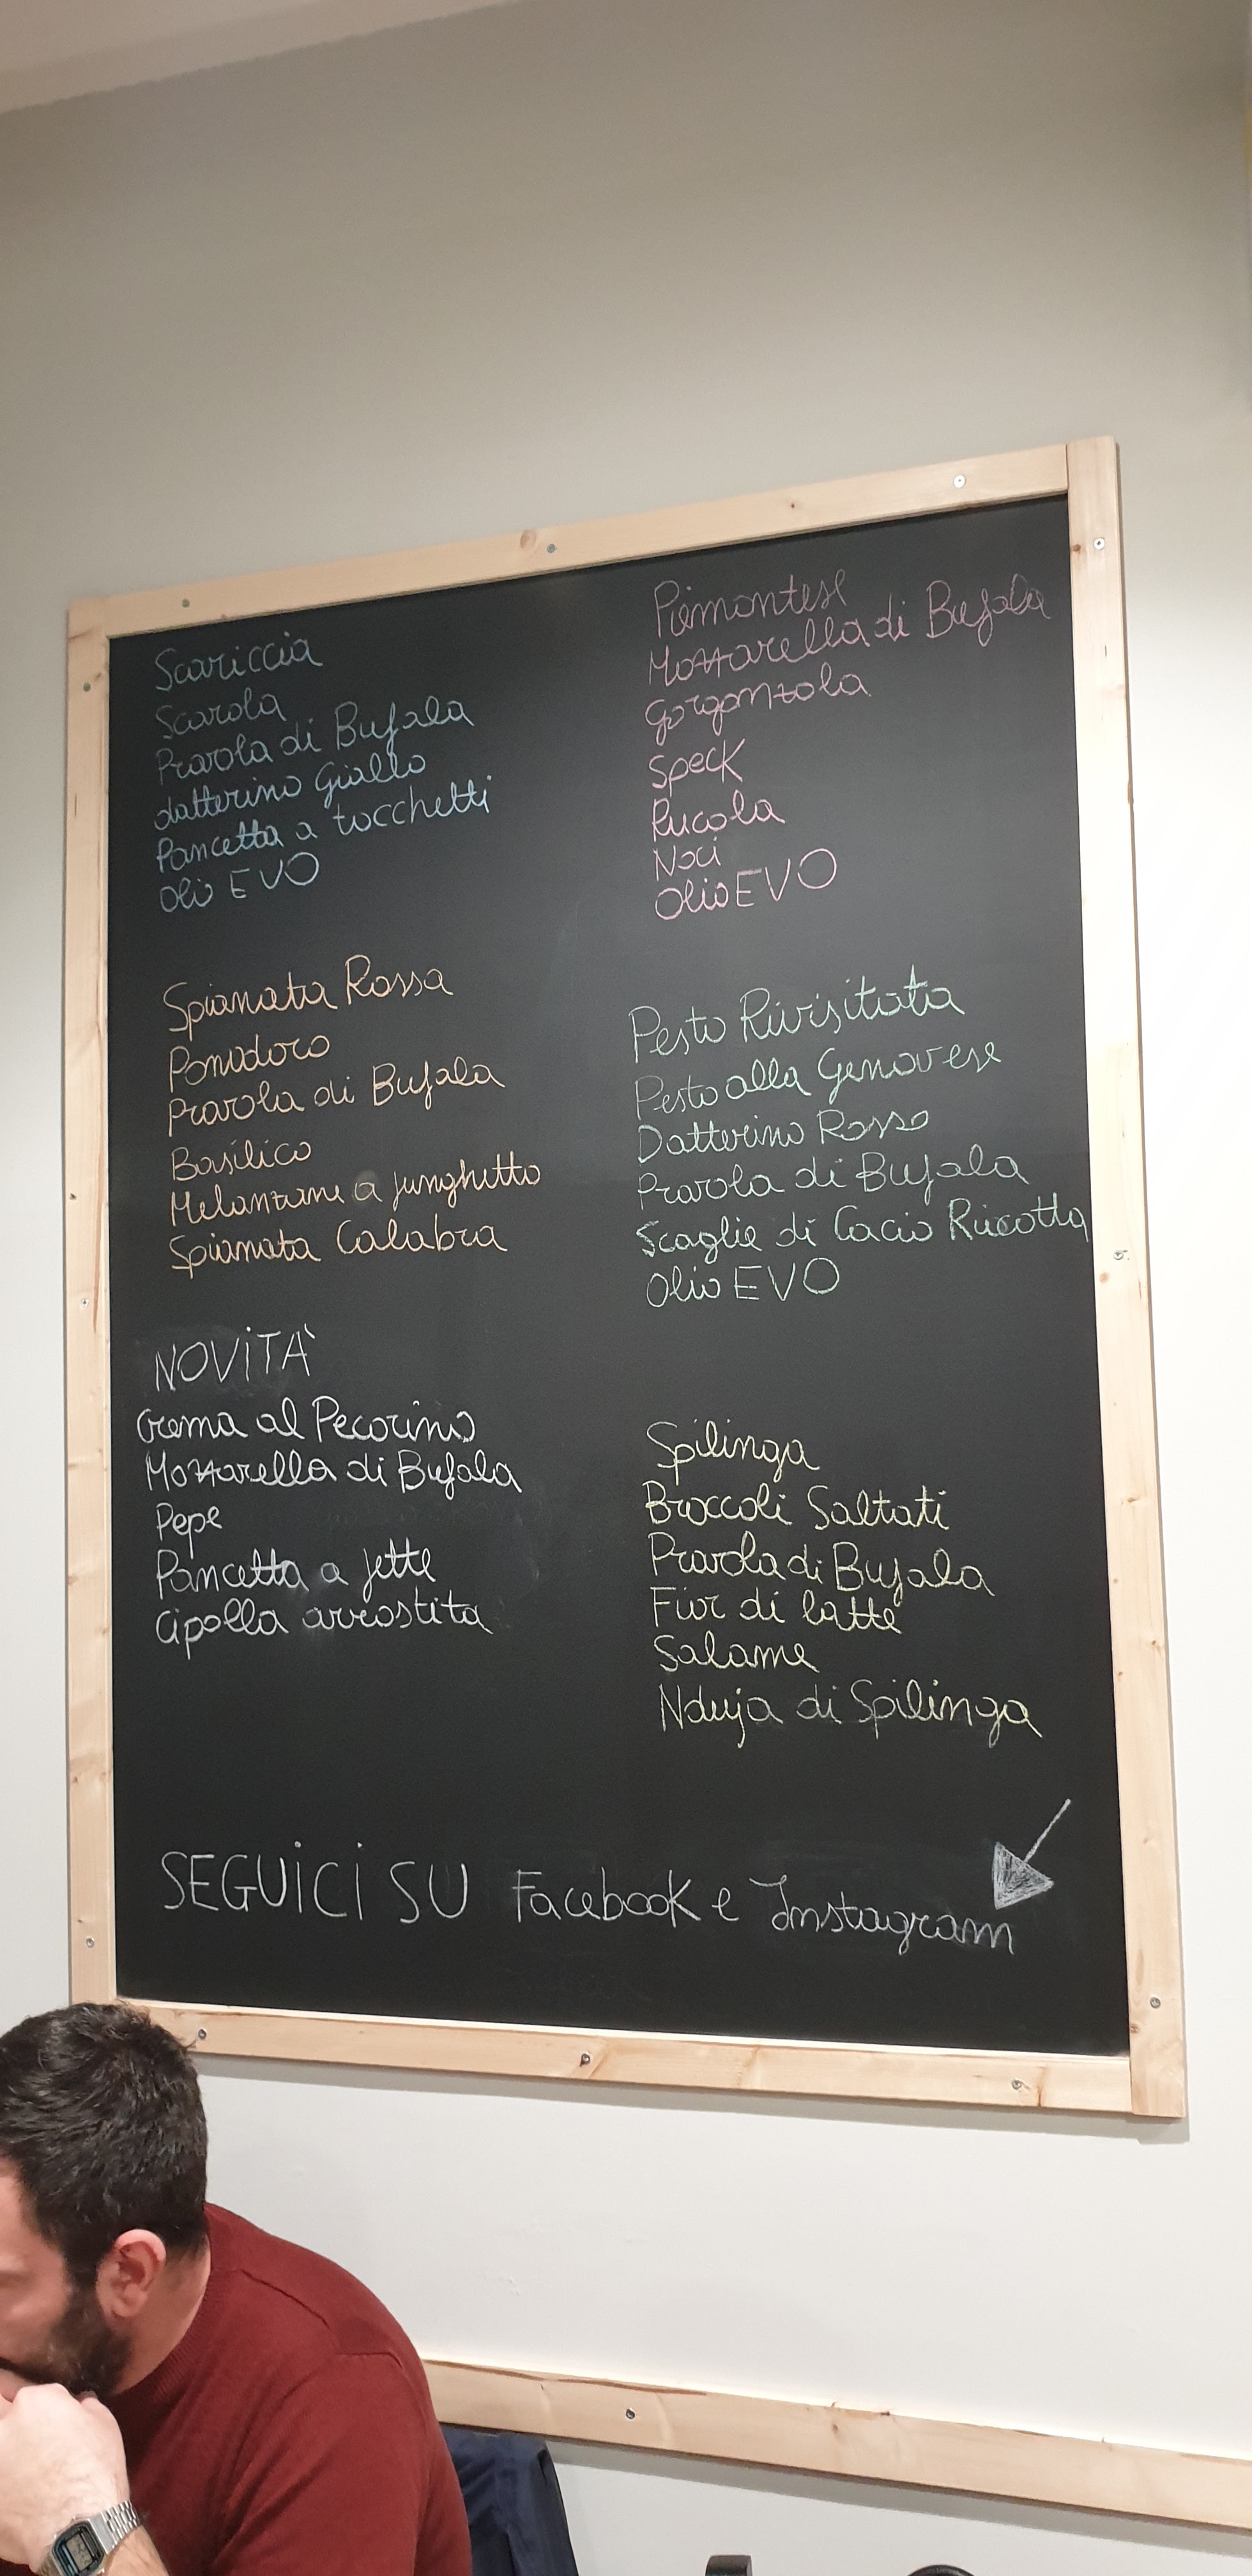 Scariccia
Scarola
Provola di Bufala
datterino giallo
Pancetta a tocchetti
Olio EVO
Spianata Rossa
Pomodoro
Provola di Bufala
Basilico
Melanzane a funghetto
Spianata Calabra
NOVITA'
Crema al Pecorino
Mozzarella di Bufala
Pepe
Pancetta a fette
Cipolla arrostita
Piemontese
Mozzarella di Bufala
Gorgonzola
Speck
Rucola
Noci
Olio EVO
Pesto Rivisitata
Pesto alla Genovese
Datterino Rosso
Provola di Bufala
Scaglie di Cacio Ricotta
Olio EVO
Spilinga
Broccoli Saltati
Provola di Bufala
Fior di latte
Salame
Nduja di Spilinga
SEGUICI SU Facebook e Instagram